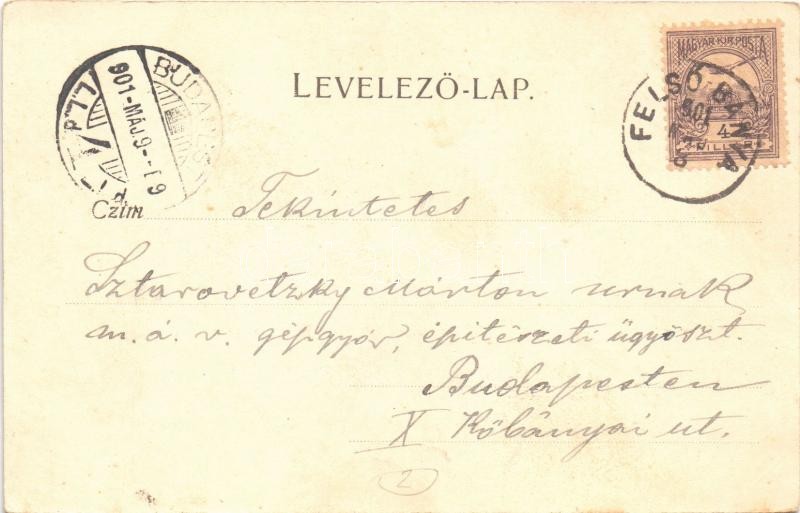 LEVELEZŐ-LAP.
MAGYAR·KIR·POSTA
FELSŐ-BÁNYA
901
BUDAPEST
901-MÁJ.9-
Czím
Tekintetes
Sztarovetzky Márton urnak
m. á. v. gépgyár, építészeti ügyoszt.
Budapesten
X Kőbányai ut.
2